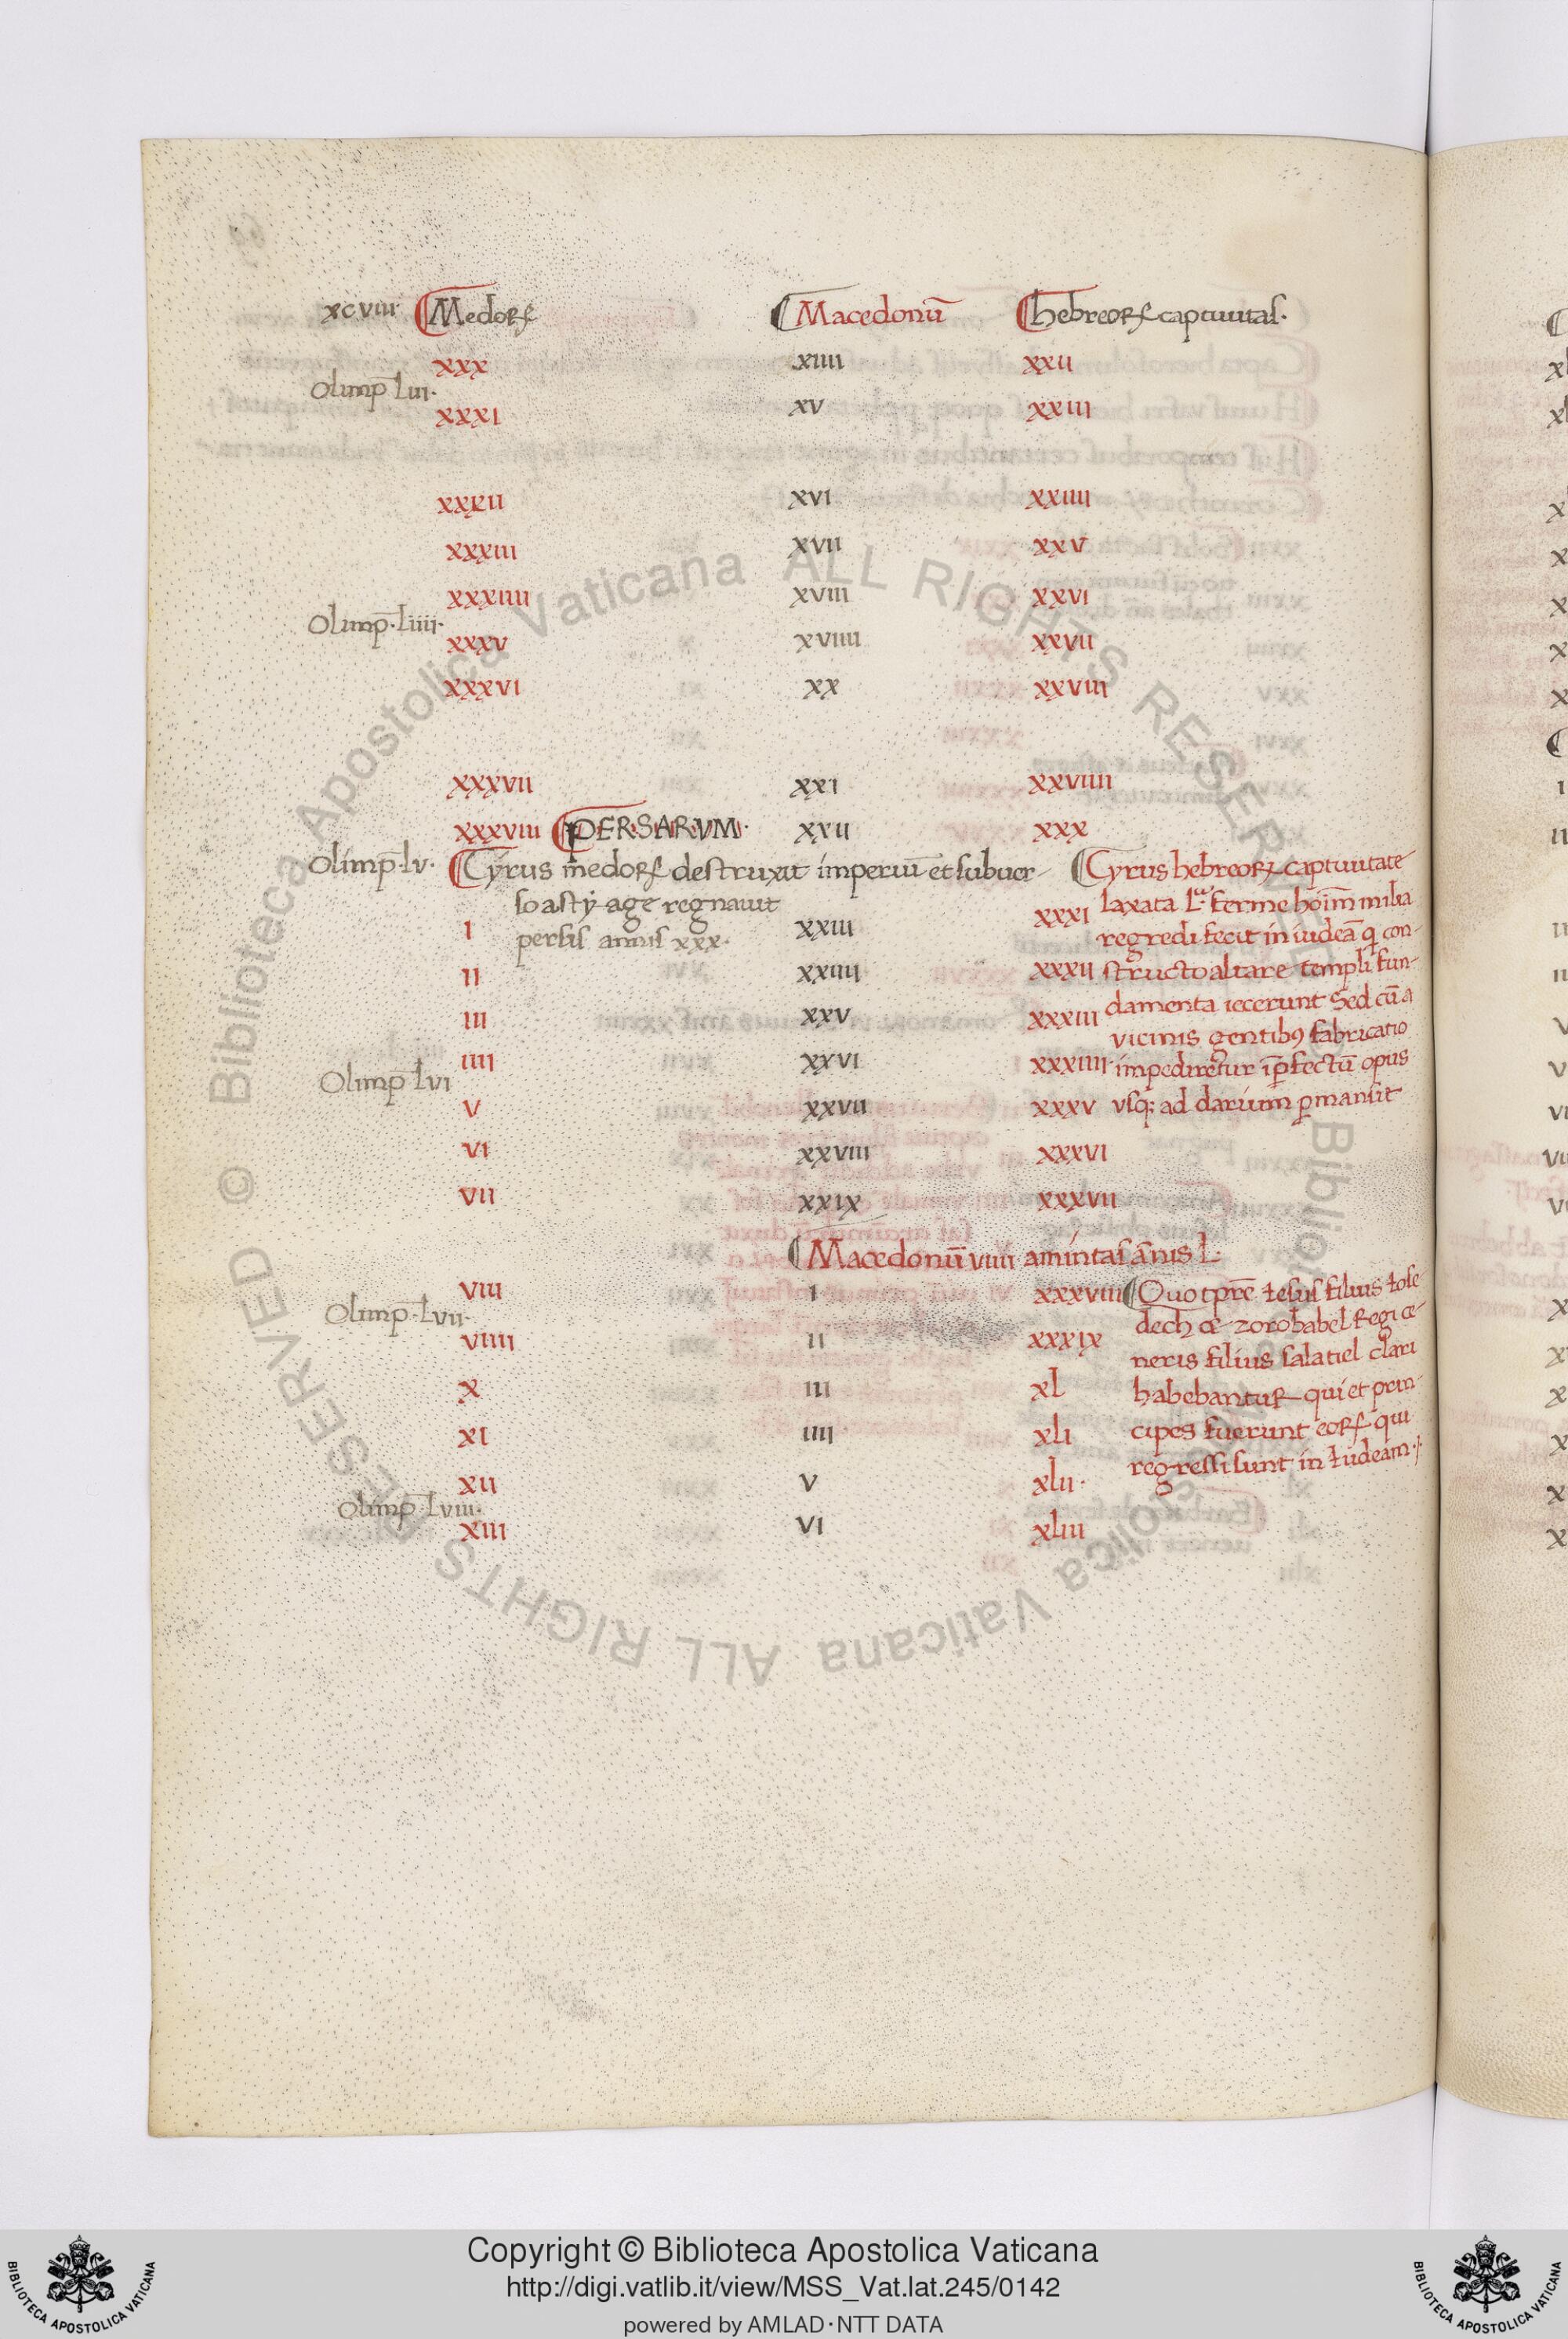 xcviii· Medoꝝ Macedonū hebreoꝝ captiuitas·
xxx xiiii xxii
Olimp̄ Liii·
xxxi xv xxiii
xxxii xvi xxiiii
xxxiii xvii xxv
xxxiiii xviii xxvi
Olimp̄·Liiii·
xxxv xviiii xxvii
xxxvi xx xxviii
xxxvii xxi xxviiii
xxxviii PERSARVM· xxii xxx
Olimp̄·Lv· Cyrus medoꝝ destruxit imperiū et subuer
so astyage regnauit
persis annis xxx·
Cyrus hebreoꝝ captiuitate
laxata L.ᵃ ferme hoīm milia
regredi fecit in iudeā q̨ con-
structo altare templi fun-
damenta iecerunt Sed cū a
vicinis gentibꝰ fabricatio
impediretur īp̱fectū opus
vsq; ad darium p̱mansit
I xxiii xxxi
II xxiiii xxxii
III xxv xxxiii
IIII xxvi xxxiiii·
Olimp̄ Lvi
V xxvii xxxv
VI xxviii xxxvi
VII xxix xxxvii
Macedonū viiii· amintas an̄is L·
VIII I xxxviii
Olimp̄·Lvii·
VIIII II xxxix
X III xl
XI IIII xli
XII V xlii·
Olimp̄ Lviii·
XIII VI xliii
Quo tp̄re Iesus filius Iose
dech & zorobabel Regi ge
neris filius salatiel clari
habebantur qui et prin-
cipes fuerunt eoꝝ qui
regressi sunt in Iudeam·
Copyright © Biblioteca Apostolica Vaticana
http://digi.vatlib.it/view/MSS_Vat.lat.245/0142
powered by AMLAD·NTT DATA
BIBLIOTECA APOSTOLICA VATICANA
BIBLIOTECA APOSTOLICA VATICANA
© Biblioteca Apostolica Vaticana ALL RIGHTS RESERVED
© Biblioteca Apostolica Vaticana ALL RIGHTS RESERVED